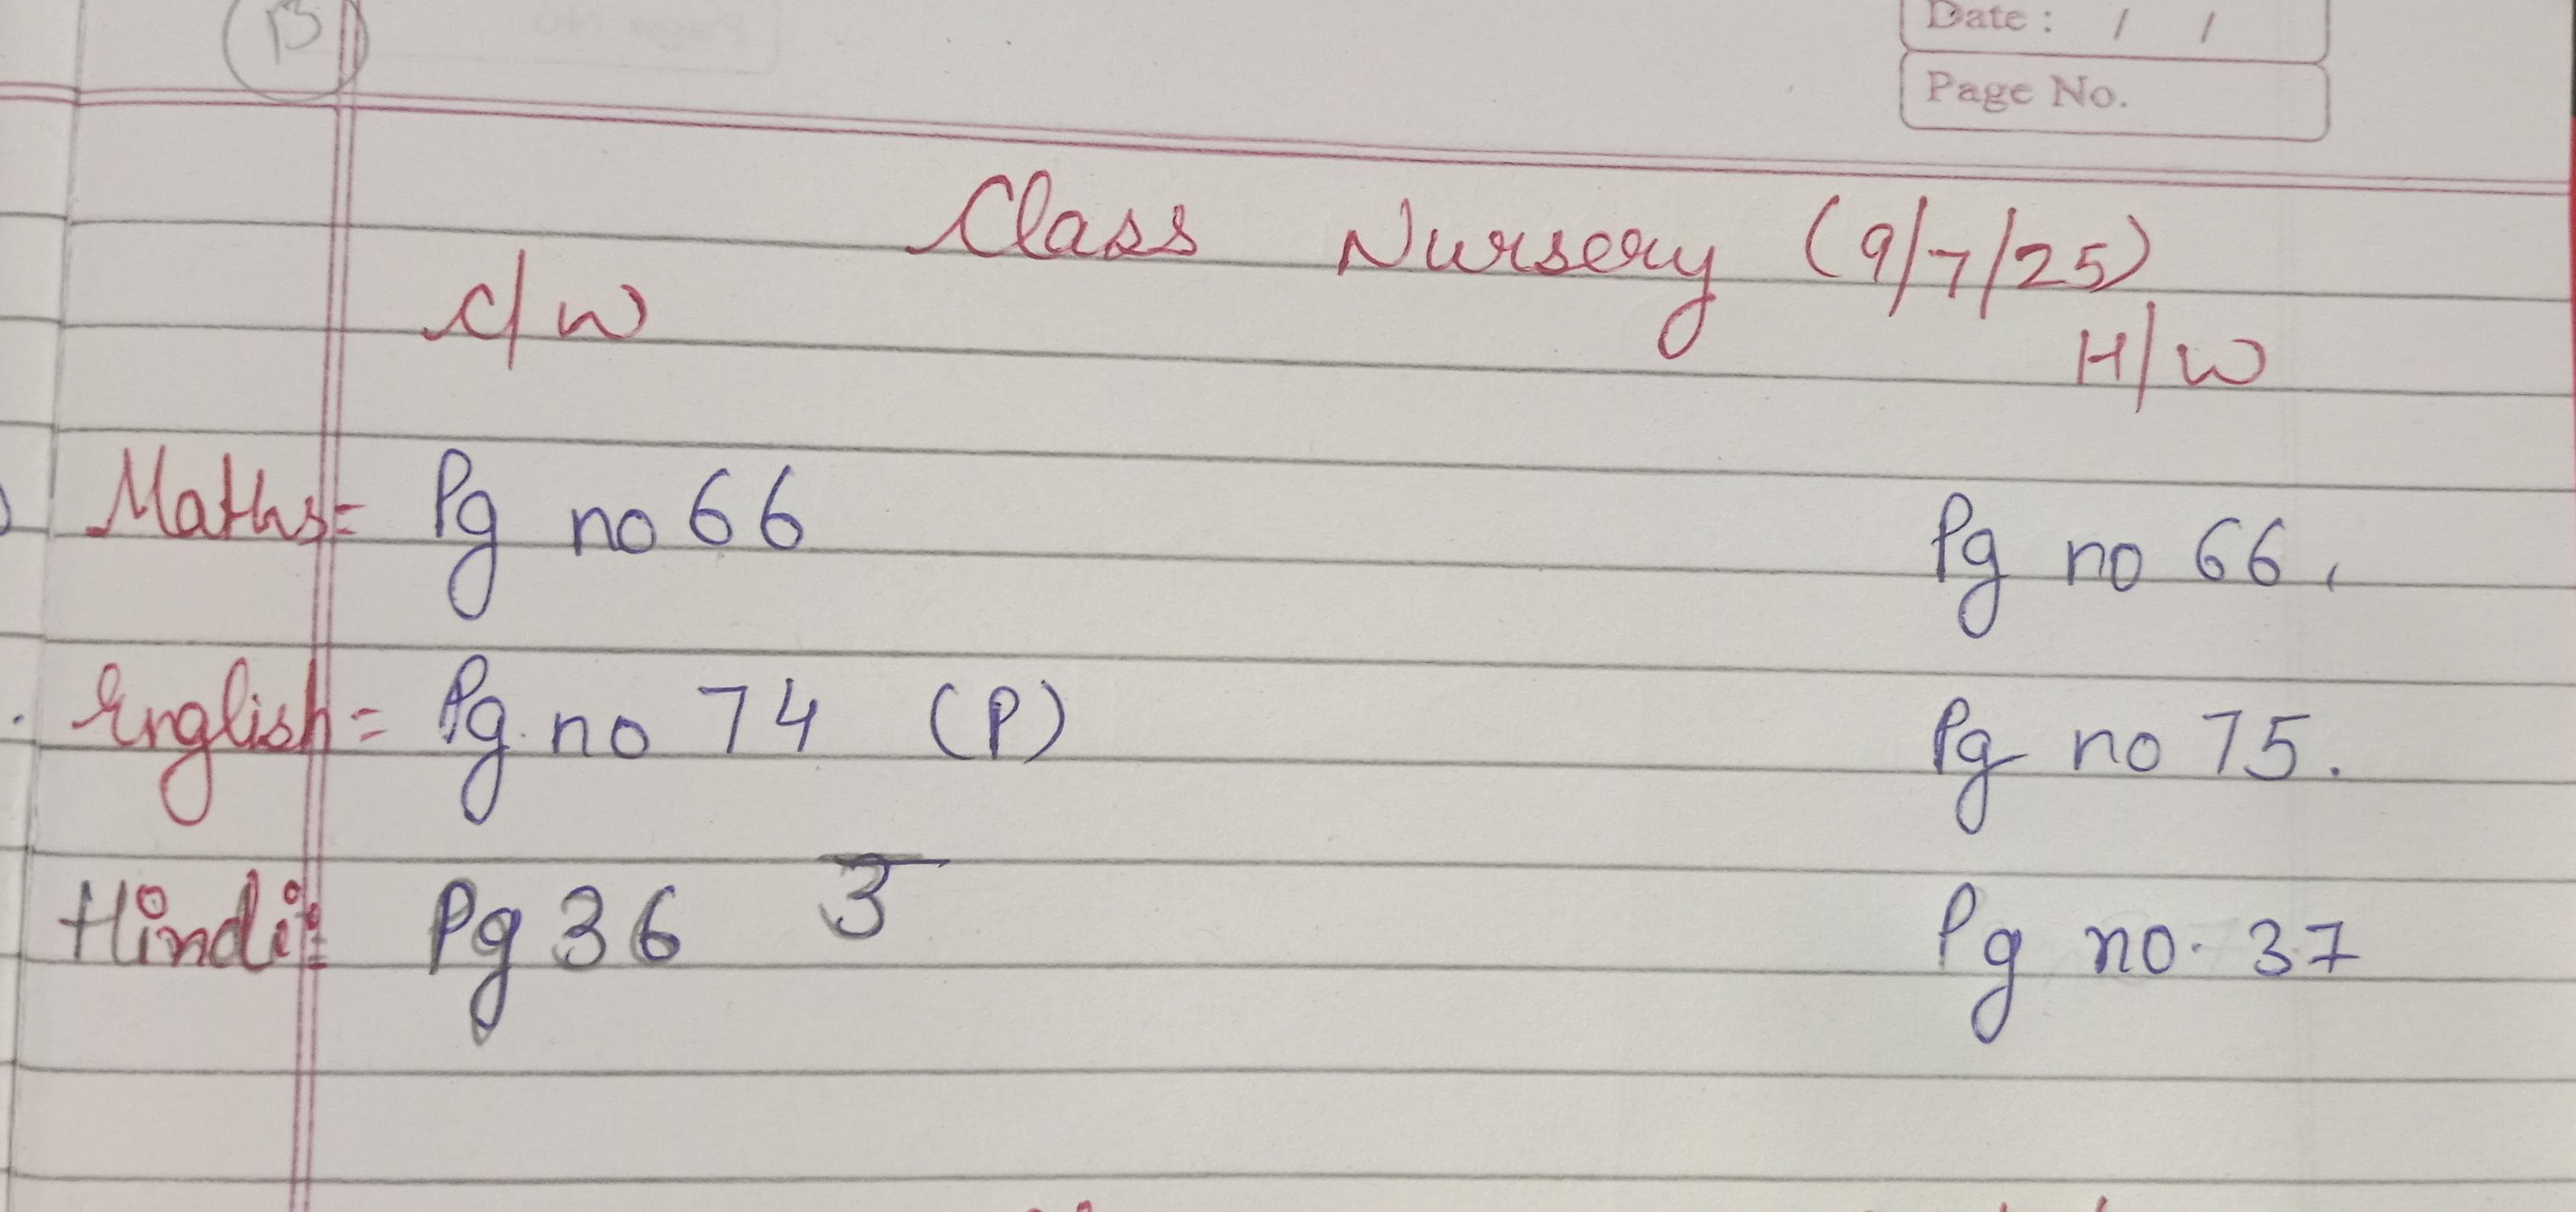 B
Date : / /
Page No.
Class Nursery (9/7/25)
C/W H/W
Maths= Pg no 66 Pg no 66.
English= Pg. no 74 (P) Pg no 75.
Hindi= Pg 36 उ Pg no. 37